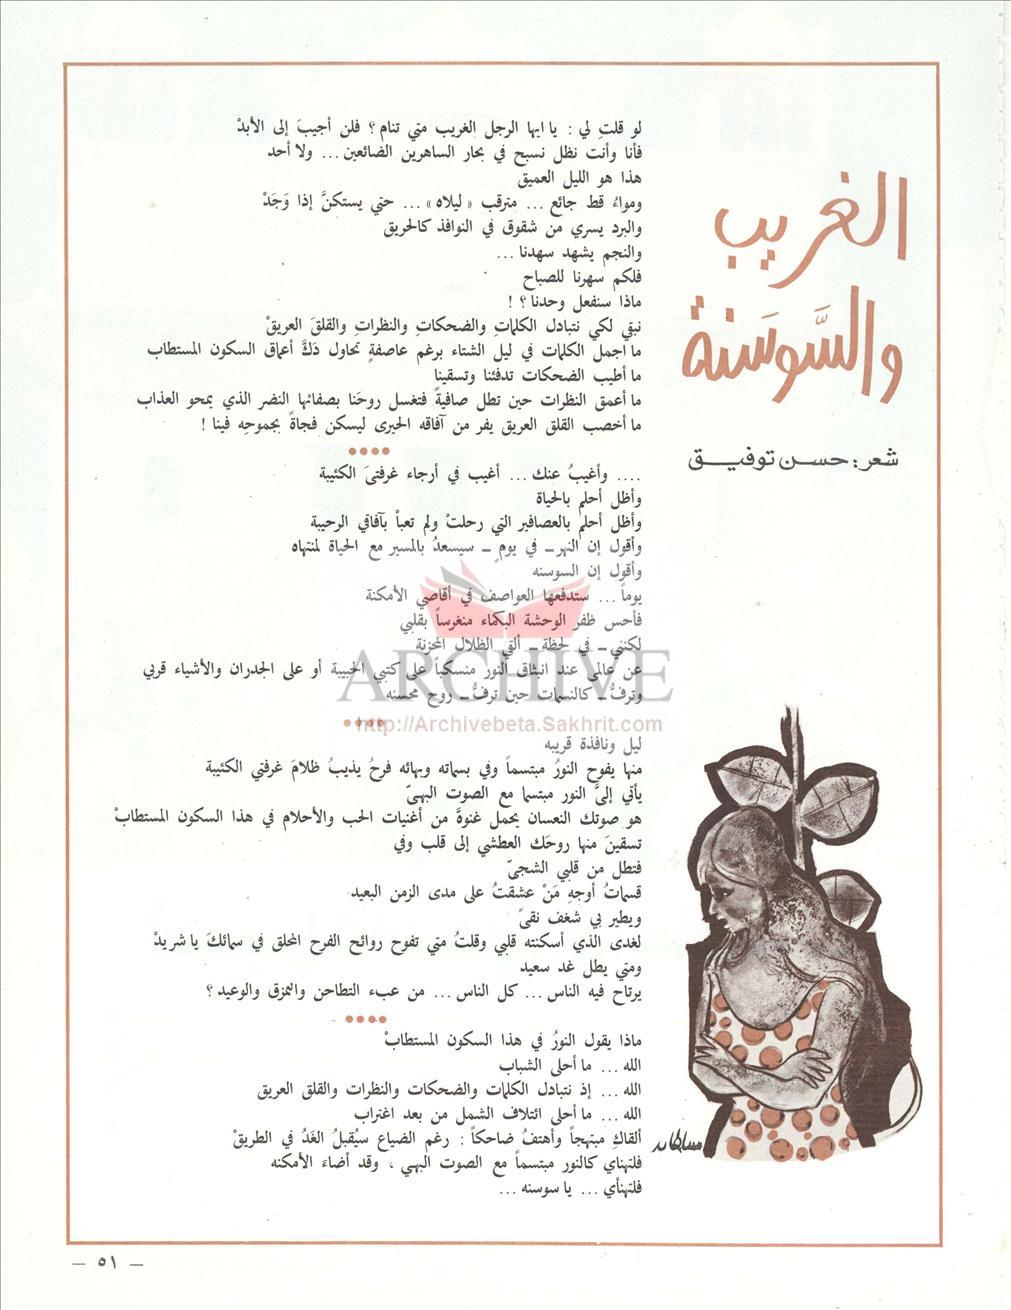 الغريب
والسَّوسَنة
شعر: حسن توفيق
لو قلتِ لي : يا ايها الرجل الغريب متي تنام ؟ فلن أجيبَ إلى الأبدْ
فأنا وأنت نظل نسبح في بحار الساهرين الضائعين ... ولا أحد
هذا هو الليل العميق
ومواءُ قط جائع ... مترقب « ليلاه » ... حتي يستكنَّ إذا وَجَدْ
والبرد يسري من شقوق في النوافذ كالحريق
والنجم يشهد سهدنا ...
فلكم سهرنا للصباح
ماذا سنفعل وحدنا ؟ !
نبقي لكي نتبادل الكلماتِ والضحكاتِ والنظراتِ والقلقَ العريقْ
ما اجمل الكلمات في ليل الشتاء برغم عاصفةٍ تحاول دَكَّ أعماق السكون المستطاب
ما أطيب الضحكات تدفئنا وتسقينا
ما أعمق النظرات حين تطل صافيةً فتغسل روحَنا بصفائها النضر الذي يمحو العذاب
ما أخصب القلق العريق يفر من آفاقه الحيرى ليسكن فجاةً بجموحِه فينا !
.... وأغيبُ عنك ... أغيب في أرجاء غرفتىَ الكئيبة
وأظل أحلم بالحياة
وأظل أحلم بالعصافير التي رحلتْ ولم تعبأ بآفاقي الرحيبة
وأقول إن النهر ـ في يومٍ ـ سيسعدُ بالمسير مع الحياة لمنتهاه
وأقول إن السوسنه
يوماً ... ستدفعها العواصف في أقاصي الأمكنة
فأحس ظفر الوحشة البكماء منغرساً بقلبي
لكنني ـ في لحظة ـ ألقي الظلال المحزنة
عن عالمي عند انبثاق النور منسكباً على كتبي الحبيبة أو على الجدران والأشياء قربي
وترفُّ ـ كالنسمات حين ترفُّ ـ روح محسنه
ARCHIVE
http://Archivebeta.Sakhrit.com
ليل ونافذة قريبه
منها يفوح النورُ مبتسماً وفي بسماته وبهائه فرحُ يذيبُ ظلامَ غرفتي الكئيبة
يأتي إلىَّ النور مبتسما مع الصوت البهىّ
هو صوتك النعسان يحمل غنوةً من أغنيات الحب والأحلام في هذا السكون المستطابْ
تسقينَ منها روحَك العطشي إلى قلب وفي
فتطل من قلبي الشجىّ
قسماتُ أوجهِ مَنْ عشقتُ على مدى الزمن البعيد
ويطير بي شغف نقىً
لغدى الذي أسكنته قلبي وقلتُ متي تفوح روائح الفرح المحلق في سمائكَ يا شريدْ
ومتي يطل غد سعيد
يرتاح فيه الناس ... كل الناس ... من عبء التطاحن والتمزق والوعيد ؟
ماذا يقول النورُ في هذا السكون المستطابْ
الله ... ما أحلى الشباب
الله ... إذ نتبادل الكلمات والضحكات والنظرات والقلق العريق
الله ... ما أحلى ائتلاف الشمل من بعد اغتراب
ألقاكِ مبتهجاً وأهتفُ ضاحكاً : رغم الضياع سيُقبلُ الغَدُ في الطريقْ
فلتهناي كالنور مبتسماً مع الصوت البهي ، وقد أضاءَ الأمكنه
فلتهنأي ... يا سوسنه ...
— ٥١ —